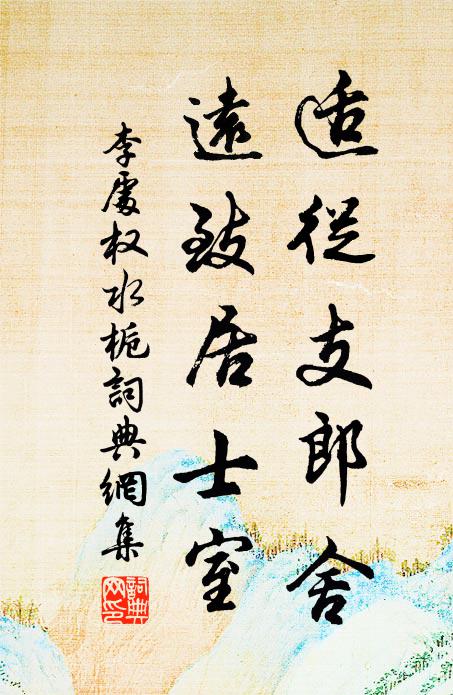 适從支郎舍
遠致居士室
李處权水栀詞典網集
詞典网印